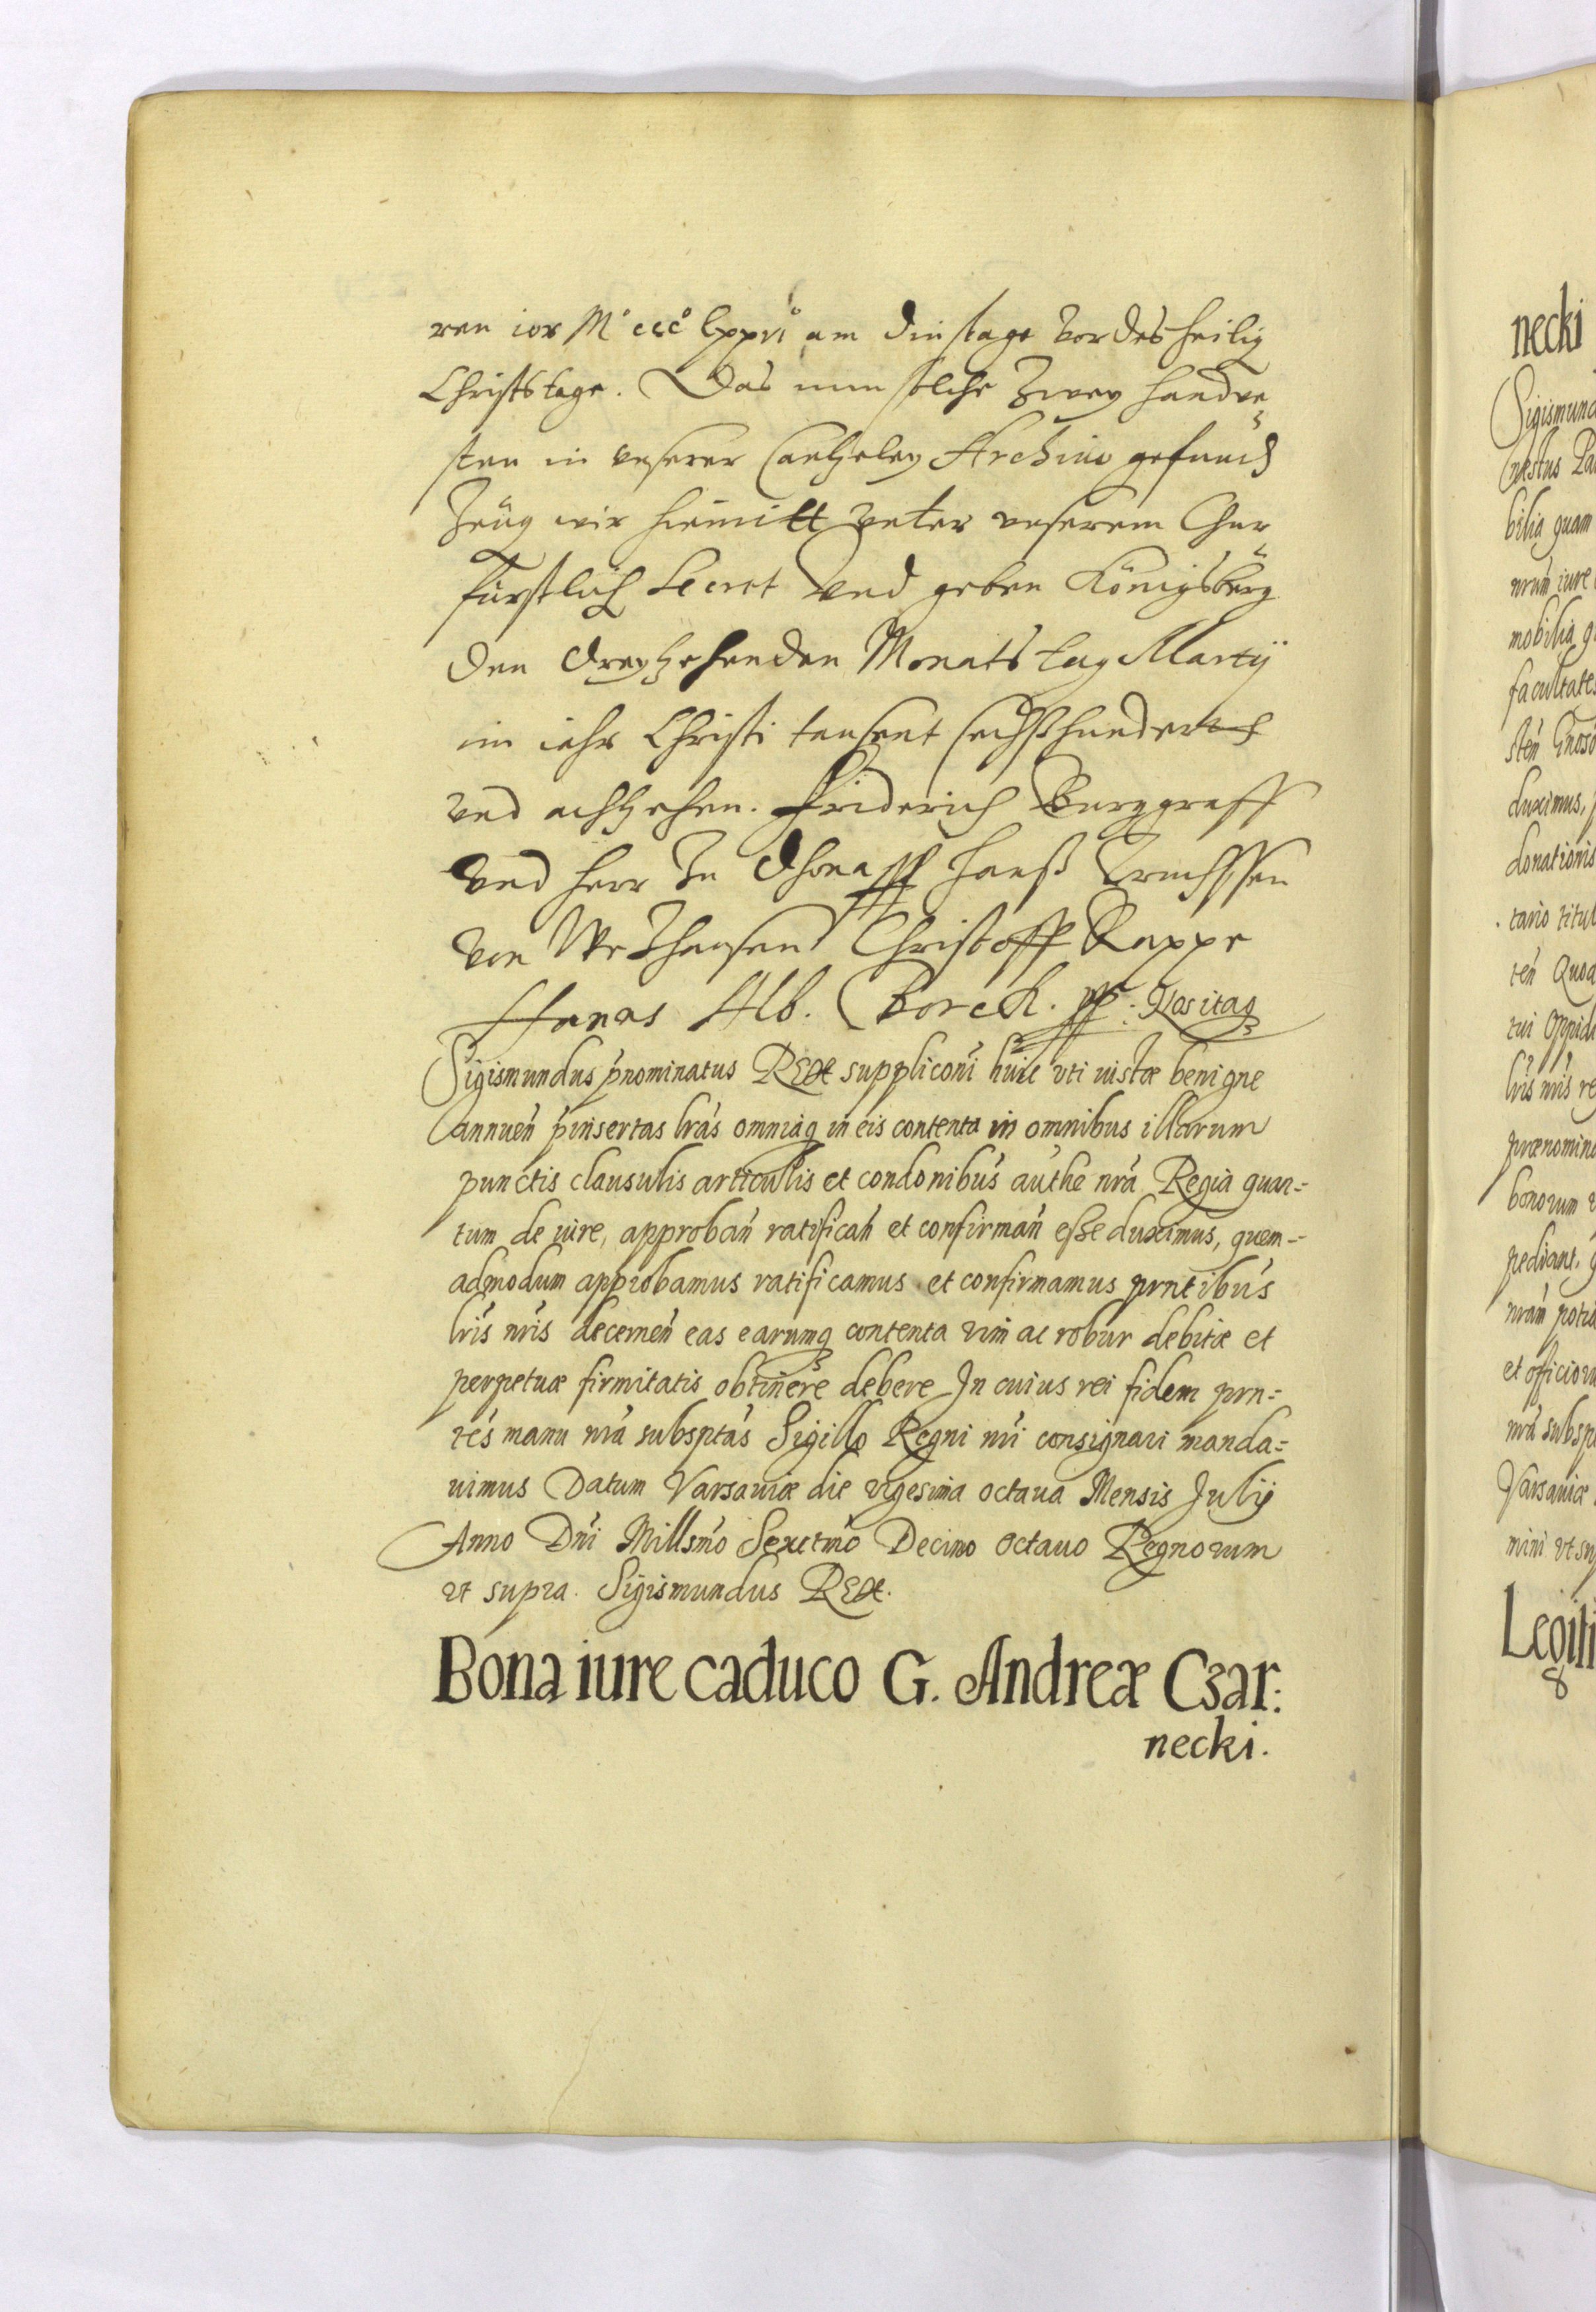 ren ior M° ccc° lxxvi° am dinstage vor des heilig
Christstage. Das nun solche zwey handve
sten in vnserer Cantzeley Archiuo gefund
Zeug wir hiemitt vnter vnserem Chur
fürstlich Secret Vnd geben Königsberg
den dreyzehenden Monats tag Martij
im iahr Christi tausent sechßhundert
vnd achtzehen. Friderich Burggraff
vnd herr zu Dhona Hanß Truchssen
von Wetzhausen Christoff Rappe
Alb. Borck.
Sigismundus pnominatus REX suppliconi huic vti iustæ benigne
annuen pinsertas lras omniaq in eis contenta in omnibus illarum
punctis clausulis articulis et condonibus authe nra Regia quan=
tum de iure, approban ratifican et confirman esse duximus, quem=
admodum approbamus ratificamus et confirmamus prntibus
lris nris decernen eas earumq contenta vim ac robur debitæ et
perpetuæ firmitatis obtinere debere In cuius rei fidem prn=
tes manu nra subsptas Sigillo Regni nri consignari manda=
uimus Datum Varsauiæ die vigesima octaua Mensis Julij
Anno Dni Millsmo Sexctmo Decimo octauo Regnorum
vt supra. Sigismundus REX.
Bona iure caduco G. Andreæ Czar:
necki.
necki
Sigismund
bilia quam
mobilia
facultates
duximus,
donationis
prænomin
bonorum
Varsauiæ
Legiti